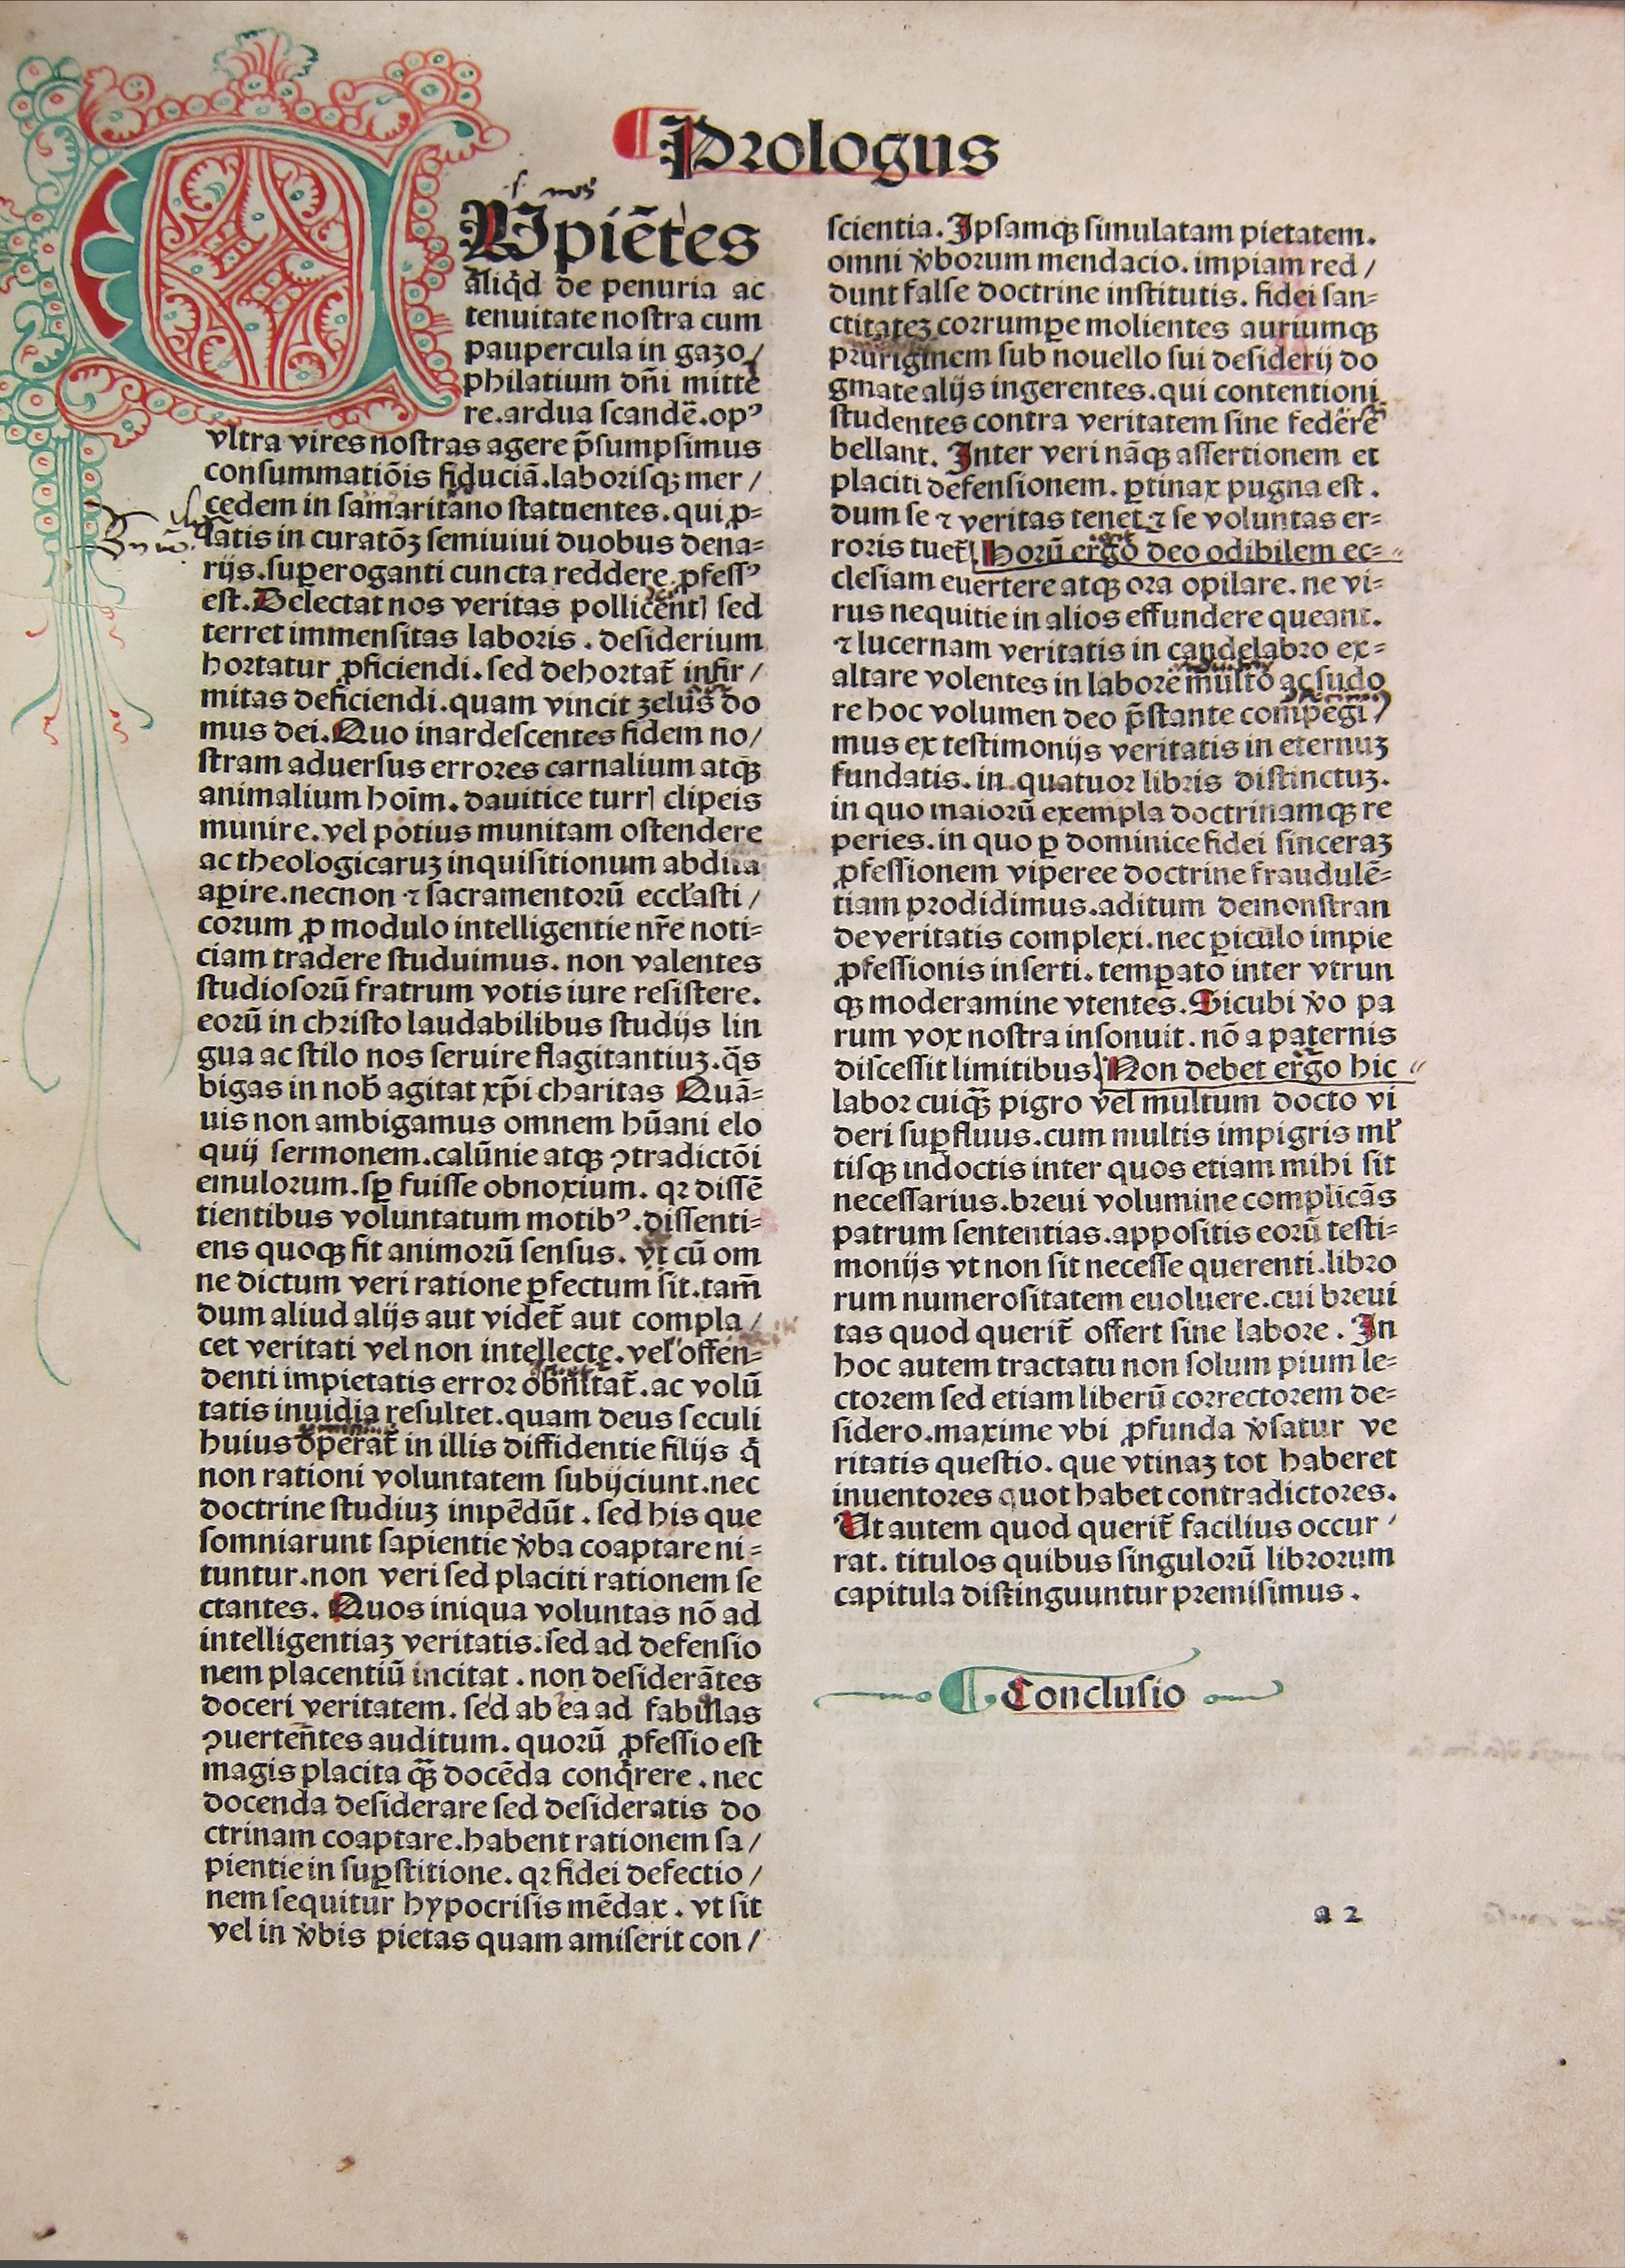 Prologus
Cupiētes
aliqd̄ de penuria ac
tenuitate nostra cum
paupercula in gazo/
philatium dn̄i mitte
re.ardua scandē.opꝰ
vltra vires nostras agere p̄sumpsimus
consummatiōis fiduciā.laborisqꝫ mer /
cedem in samaritano statuentes.qui ꝓ=
latis in curatōꝫ semiuiui duobus dena=
rijs.suꝑeroganti cuncta reddere ꝓfessꝰ
est.Delectat nos veritas pollicent̄ sed
terret immensitas laboris . desiderium
hortatur ꝓficiendi.sed dehortat̄ infir /
mitas deficiendi.quam vincit zelus do
mus dei.Quo inardescentes fidem no/
stram aduersus errores carnalium atqꝫ
animalium hoīm.dauitice turrꝭ clipeis
munire.vel potius munitam ostendere
ac theologicaruꝫ inquisitionum abdita
aꝑire.necnon ⁊ sacramentorū eccl̄asti /
corum ꝓ modulo intelligentie nr̄e noti=
ciam tradere studuimus. non valentes
studiosorū fratrum votis iure resistere.
eorū in christo laudabilibus studijs lin
gua ac stilo nos seruire flagitantiuꝫ.q̄s
bigas in nob̄ agitat xp̄i charitas Quā=
uis non ambigamus omnem hūani elo
quij sermonem.calūnie atqꝫ ꝯtradictōi
emulorum.sꝑ fuisse obnoxium. qꝛ dissē
tientibus voluntatum motibꝰ.dissenti=
ens quoqꝫ fit animorū sensus. vt cū om
ne dictum veri ratione ꝑfectum sit.tam̄
dum aliud alijs aut videt̄ aut compla /
cet veritati vel non intellecte.vel offen=
denti impietatis error obnitat̄.ac volū
tatis inuidia resultet.quam deus seculi
huius operat̄ in illis diffidentie filijs q̄
non rationi voluntatem subijciunt.nec
doctrine studiuꝫ impēdūt . sed his que
somniarunt sapientie v̓ba coaptare ni =
tuntur.non veri sed placiti rationem se
ctantes. Quos iniqua voluntas nō ad
intelligentiaꝫ veritatis.sed ad defensio
nem placentiū incitat . non desiderātes
doceri veritatem. sed ab ea ad fabulas
ꝯuertentes auditum. quorū ꝓfessio est
magis placita qꝫ̄ docēda conq̄rere . nec
docenda desiderare sed desideratis do
ctrinam coaptare.habent rationem sa /
pientie in suꝑstitione. qꝛ fidei defectio /
nem sequitur hypocrisis mēdax . vt sit
vel in v̓bis pietas quam amiserit con /
scientia. Ipsamqꝫ simulatam pietatem.
omni v̓borum mendacio. impiam red /
dunt false doctrine institutis. fidei san=
ctitateꝫ corrumꝑe molientes auriumqꝫ
pruriginem sub nouello sui desiderij do
gmate alijs ingerentes.qui contentioni
studentes contra veritatem sine federe
bellant. Inter veri nāqꝫ assertionem et
placiti defensionem. ꝑtinax pugna est .
dum se ⁊ veritas tenet ⁊ se voluntas er=
roris tuet̄. Horū ergo deo odibilem ec=
clesiam euertere atqꝫ ora opilare. ne vi=
rus nequitie in alios effundere queant.
⁊ lucernam veritatis in candelabro ex=
altare volentes in labore multo ac sudo
re hoc volumen deo p̄stante compegi
mus ex testimonijs veritatis in eternuꝫ
fundatis. in quatuor libris distinctuꝫ.
in quo maiorū exempla doctrinamqꝫ re
peries. in quo ꝑ dominice fidei sinceraꝫ
ꝓfessionem viperee doctrine fraudulē=
tiam prodidimus.aditum demonstran
de veritatis complexi. nec ꝑiculo impie
ꝓfessionis inserti. temꝑato inter vtrun
qꝫ moderamine vtentes. Sicubi v̓o pa
rum vox nostra insonuit. nō a paternis
discessit limitibus. Non debet ergo hic
labor cuiqꝫ̄ pigro vel multum docto vi
deri suꝑfluus.cum multis impigris ml̓
tisqꝫ indoctis inter quos etiam mihi sit
necessarius.breui volumine complicās
patrum sententias.appositis eorū testi=
monijs vt non sit necesse querenti.libro
rum numerositatem euoluere.cui breui
tas quod querit̄ offert sine labore . In
hoc autem tractatu non solum pium le=
ctorem sed etiam liberū correctorem de=
sidero.maxime vbi ꝓfunda v̓satur ve
ritatis questio. que vtinaꝫ tot haberet
inuentores quot habet contradictores.
Ut autem quod querit̄ facilius occur /
rat. titulos quibus singulorū librorum
capitula distinguuntur premisimus .
Conclusio
a 2